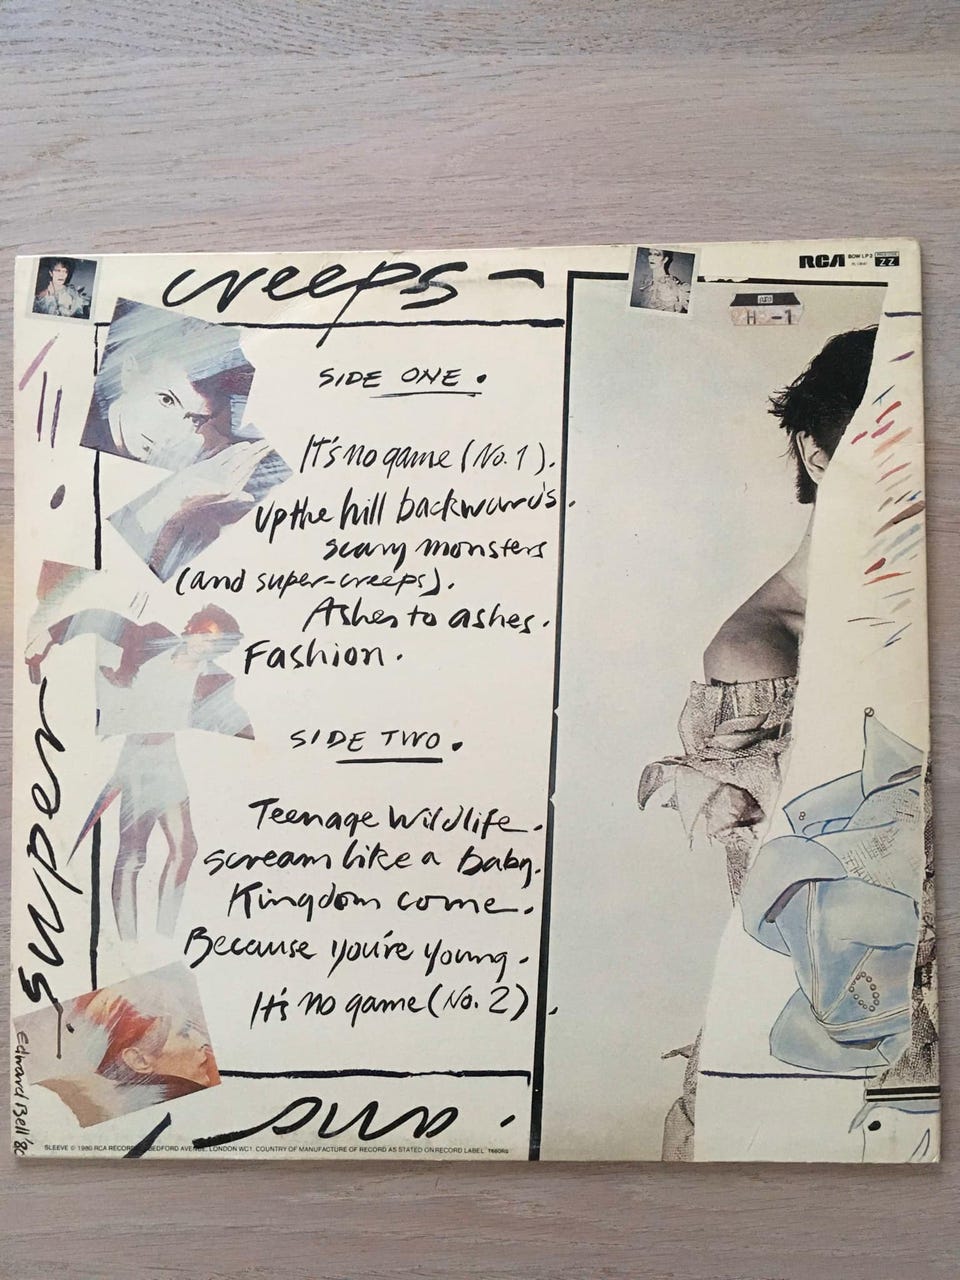 creeps -
RCA BOW LP 2
ZZ
H -1
SIDE ONE.
It's no game (No. 1).
Up the hill backwards.
scary monsters
(and super-creeps).
Ashes to ashes.
Fashion.
SIDE TWO.
Teenage Wildlife.
scream like a baby.
Kingdom come.
Because you're young.
It's no game (No. 2).
super
and
Edward Bell '80
SLEEVE © 1980 RCA RECORDS BEDFORD AVENUE, LONDON WC1. COUNTRY OF MANUFACTURE OF RECORD AS STATED ON RECORD LABEL.